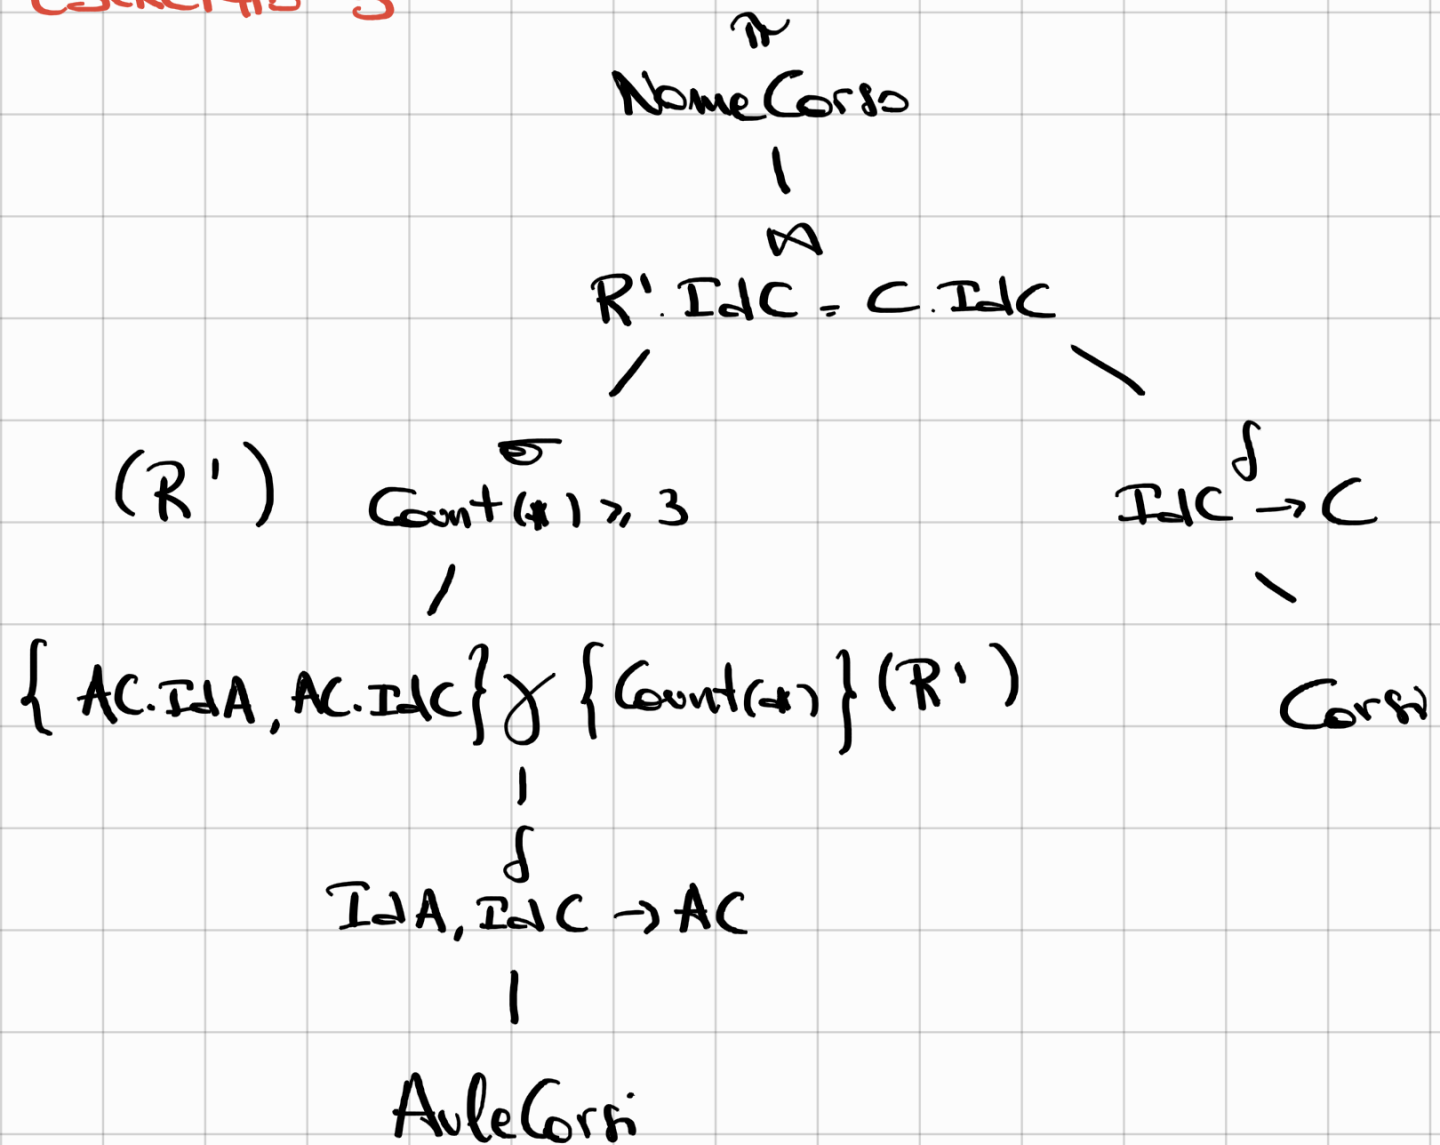 Esercizio 3
π
NomeCorso
⋈
R'.IdC = C.IdC
σ
(R') Count(*) ≥ 3
δ
IdC → C
{ AC.IdA, AC.IdC} γ {Count(*)} (R')
Corsi
δ
IdA, IdC → AC
AuleCorsi